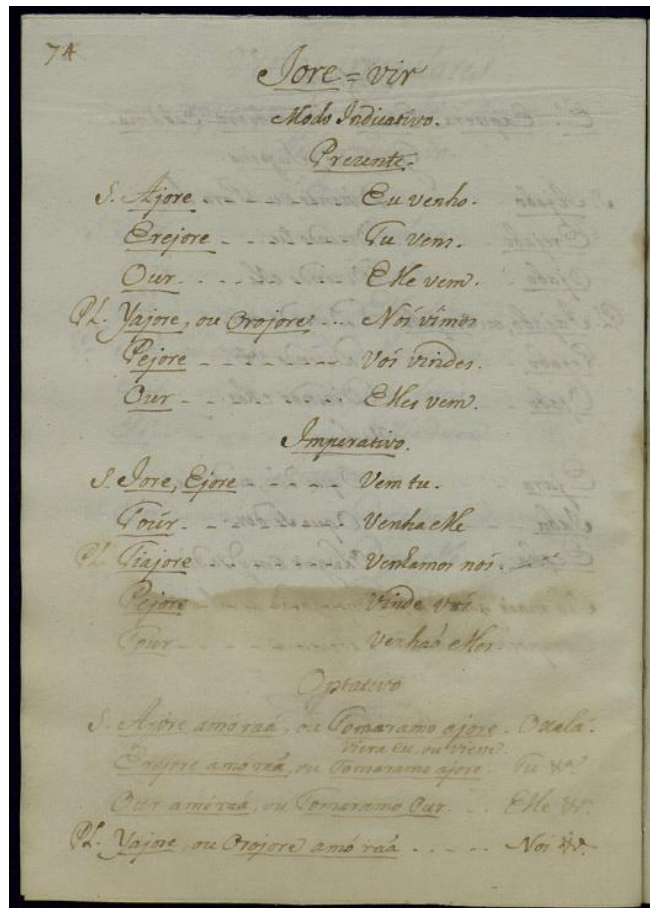 74
Jore = vir
Modo Indicativo.
Prezente.
S. Ajore - - - - - Eu venho.
Erejore - - . - - Tu vens.
Our. . . . - - Elle vem.
Pl. Yajore, ou Orojore. . . . Nós vimos
Pejore - - - - - - - Vós vindes.
Our - - . - - Elles vem.
Imperativo.
S. Jore, Ejore - - - - - Vem tu.
Toúr. - . - - . Venha elle
Pl. Tiajore - - - Venhamos nós.
Pejore Vinde vós
Tour - - - Venhaõ elles.
Optativo
S. Ajore amó raá, ou Tomaramo ajore. Oxalá.
Viera Eu, ou viesse.
Erejore amo raá, ou Tomaramo ajore. Tu &ª
Our amó raá, ou Tomaramo Our. . . Elle &ª.
Pl. Yajore, ou Orojore amó raá - - - - - Nós &ª.